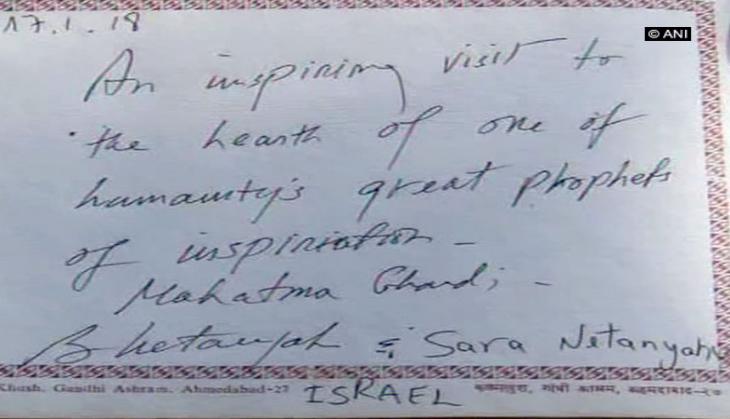 17.1.18
© ANI
An inspiring visit to
the hearth of one of
humanity's great prophets
of inspiration -
Mahatma Ghandi -
B Netanyah & Sara Netanyahu
Khush, Gandhi Ashram, Ahmedabad-27
ISRAEL
गांधी आश्रम, अहमदाबाद-२७